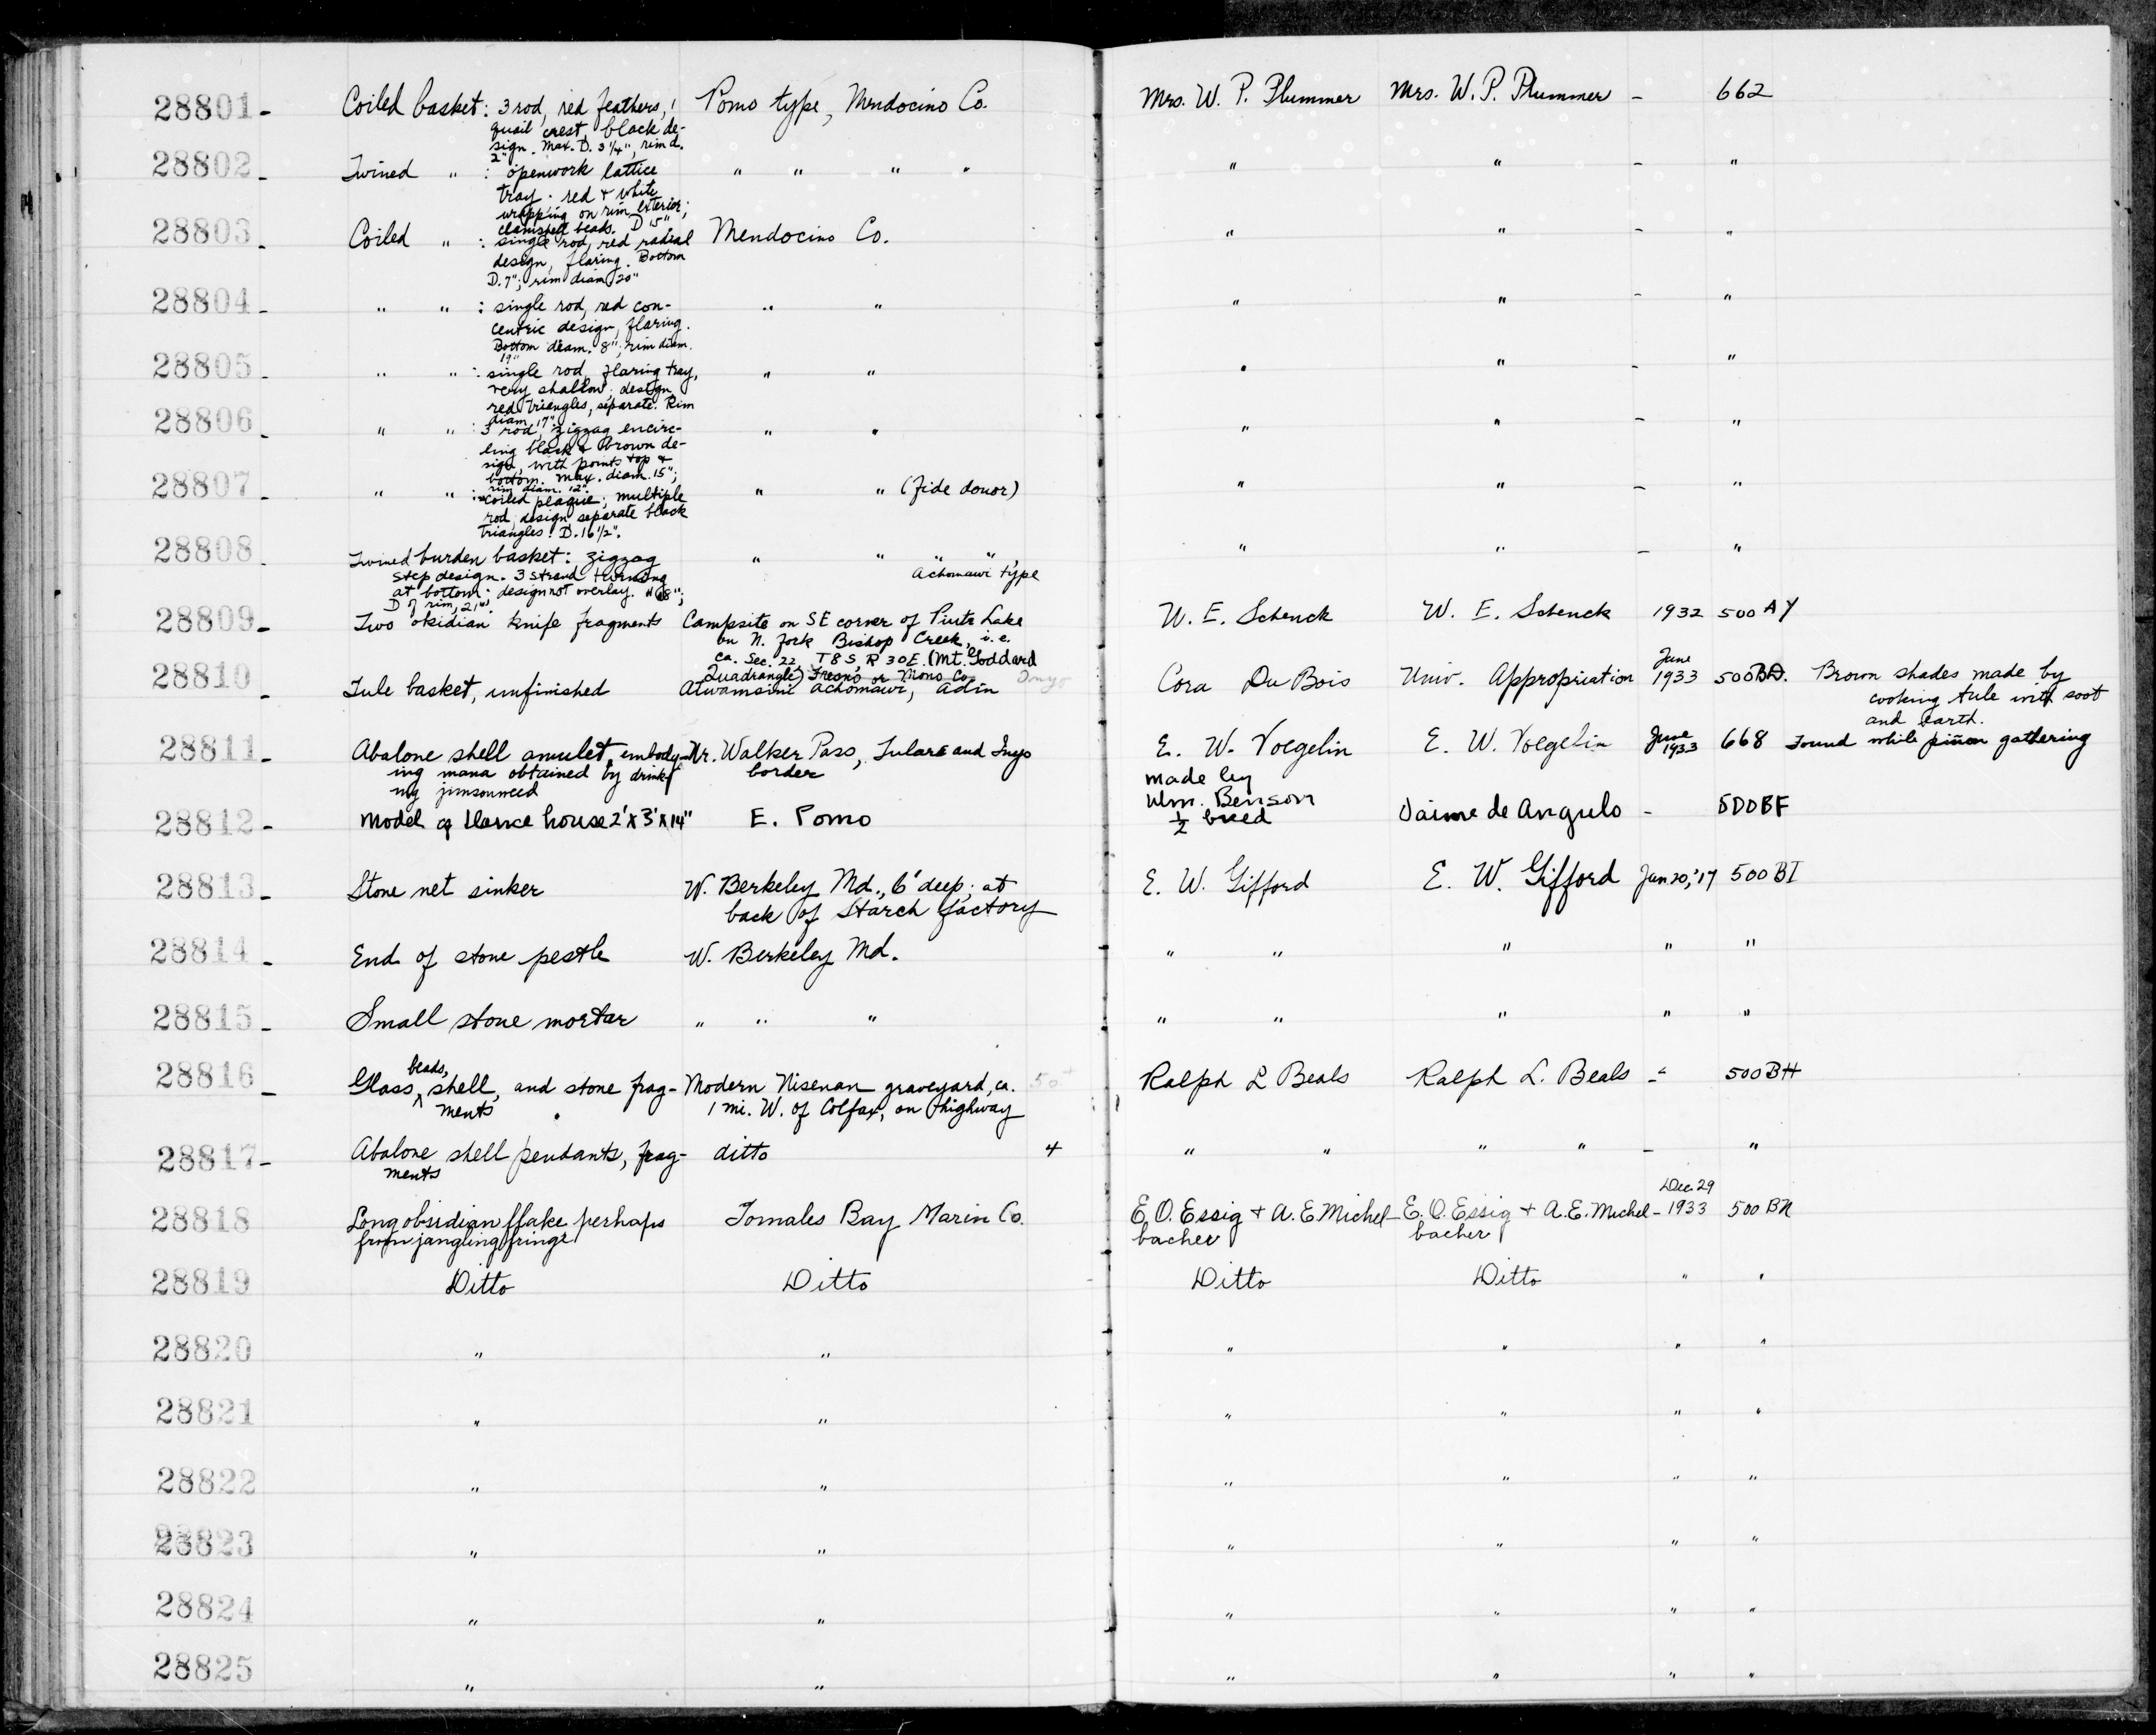 28801- Coiled basket: 3 rod, red feathers, 1 Pomo type, Mendocino Co. Mrs. W. P. Plummer Mrs. W. P. Plummer - 662
quail crest, black de-
sign. Max. D. 3 1/4", rim d.
2"
28802- Twined " : openwork lattice " " " " " " - "
tray; red + white
wrapping on rim exterior;
clamshell beads. D 15"
28803- Coiled " : single rod, red radial Mendocino Co. " " - "
design, flaring. Bottom
D. 7"; rim diam 20"
28804- " " : single rod, red con- " " " " - "
centric design, flaring.
Bottom diam. 8"; rim diam.
19"
28805- " " : single rod, flaring tray, " " " " - "
very shallow; design,
red triangles, separate. Rim
diam. 17".
28806- " " : 3 rod, zigzag encirc- " " " " - "
ling black & brown de-
sign, with points top &
bottom. Max. diam. 15";
rim diam. 12".
28807- " " : coiled plaque; multiple " " (fide donor) " " - "
rod, design separate black
triangles. D. 16 1/2".
28808- Twined burden basket: zigzag " " " " , " " - "
step design. 3 strand turning Achomawi type
at bottom; design not overlay.
D of rim, 21"
28809- Two obsidian knife fragments Campsite on SE corner of Piute Lake W. E. Schenck W. E. Schenck 1932 500 AY
on N. fork Bishop Creek, i.e.
ca. Sec. 22, T 8 S, R 30 E. (Mt. Goddard
Quadrangle) Fresno or Mono Co. Inyo
28810- Tule basket, unfinished Atwamsini Achomawi, Adin Cora DuBois Univ. Appropriation June 1933 500BD. Brown shades made by
cooking tule with soot
and earth.
28811- Abalone shell amulet, embody- Nr. Walker Pass, Tulare and Inyo E. W. Voegelin E. W. Voegelin June 1933 668 Found while piñon gathering
ing mana obtained by drink- border
ing jimsonweed
28812- Model of dance house 2' x 3' x 14" E. Pomo made by Wm. Benson 1/2 breed Jaime de Angulo - 500BF
28813- Stone net sinker W. Berkeley Md., 6' deep; at E. W. Gifford E. W. Gifford Jan 20, '17 500 BI
back of Starch factory
28814- End of stone pestle W. Berkeley Md. " " " " "
28815- Small stone mortar " " " " " " " "
28816- Glass beads, shell, and stone frag- Modern Nisenan graveyard, ca. 50+ Ralph L Beals Ralph L. Beals - 500BH
ments 1 mi. W. of Colfax, on highway
28817- Abalone shell pendants, frag- ditto 4 " " " " - "
ments
28818 Long obsidian flake perhaps Tomales Bay Marin Co. E. O. Essig + A. E. Michel- E. O. Essig + A. E. Michel- Dec 29 1933 500 BN
from jangling fringe bacher bacher
28819 Ditto Ditto Ditto Ditto " "
28820 " " " " " "
28821 " " " " " "
28822 " " " " " "
28823 " " " " " "
28824 " " " " " "
28825 " " " " " "